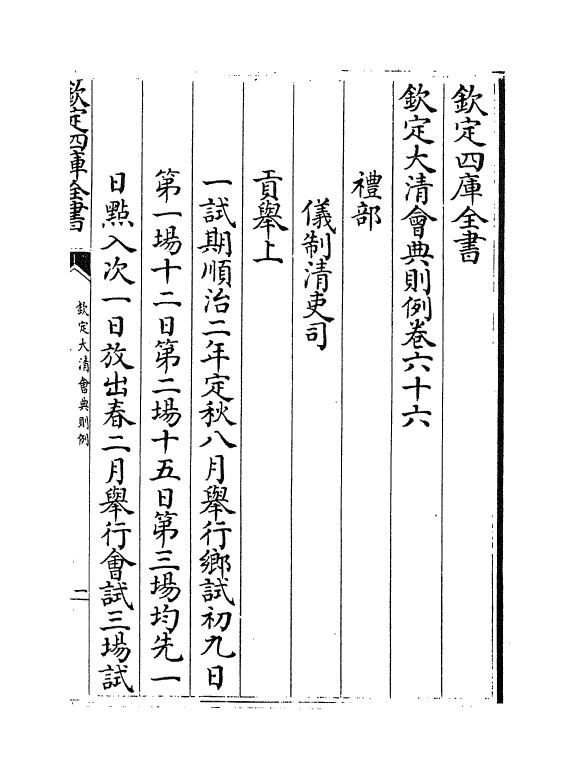 欽定四庫全書
欽定大清會典則例卷六十六
禮部
儀制清吏司
貢舉上
一試期順治二年定秋八月舉行鄉試初九日
第一場十二日第二場十五日第三場均先一
日點入次一日放出春二月舉行會試三場試
欽定四庫全書
欽定大清會典則例
二